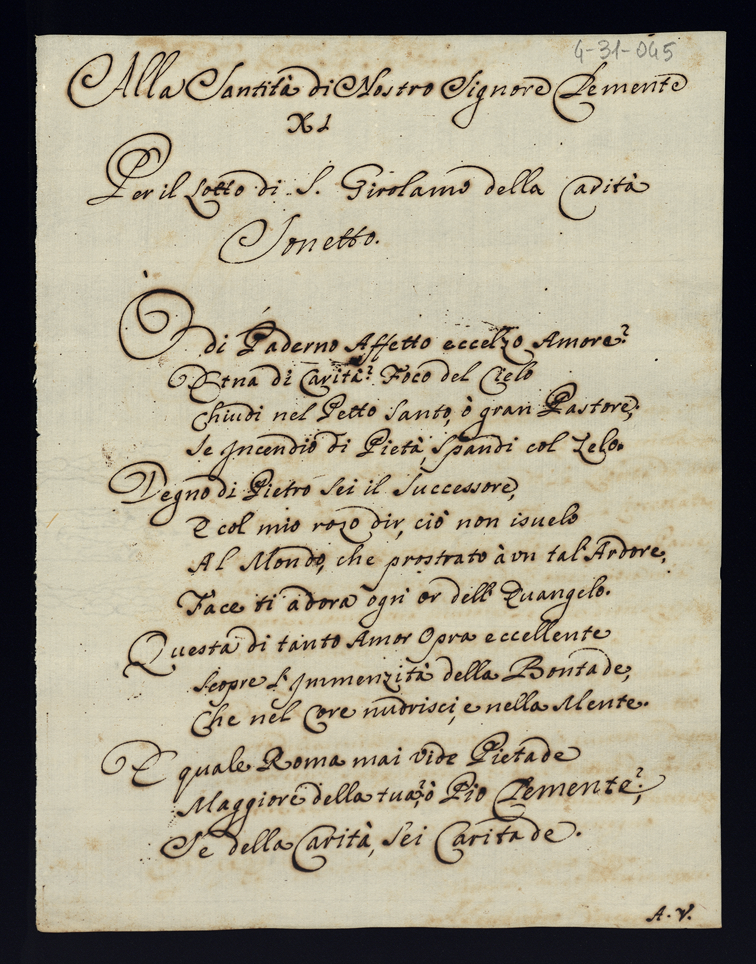 4-31-045
Alla Santità di Nostro Signore Clemente
XI
Per il Lotto di S. Girolamo della Carità
Sonetto.
O di Paderno Affetto eccelzo Amore?
Etna di Carità? Foco del Cielo
Chiudi nel Petto Santo, ò gran Pastore;
Se Incendio di Pietà, Spandi col Zelo.
Degno di Pietro Sei il Successore,
E col mio rozo dir, ciò non isuelo
Al Mondo, che prostrato à vn tal'Ardore,
Face ti adora ogn'or dell'Euangelo.
Questa di tanto Amor Opra eccellente
Scopre l'Immenzità della Bontade,
Che nel Core nudrisci, e nella Mente.
E quale Roma mai vide Pietade
Maggiore della tua? ò Pio Clemente?;
Se della Carità, Sei Caritade.
A. V.